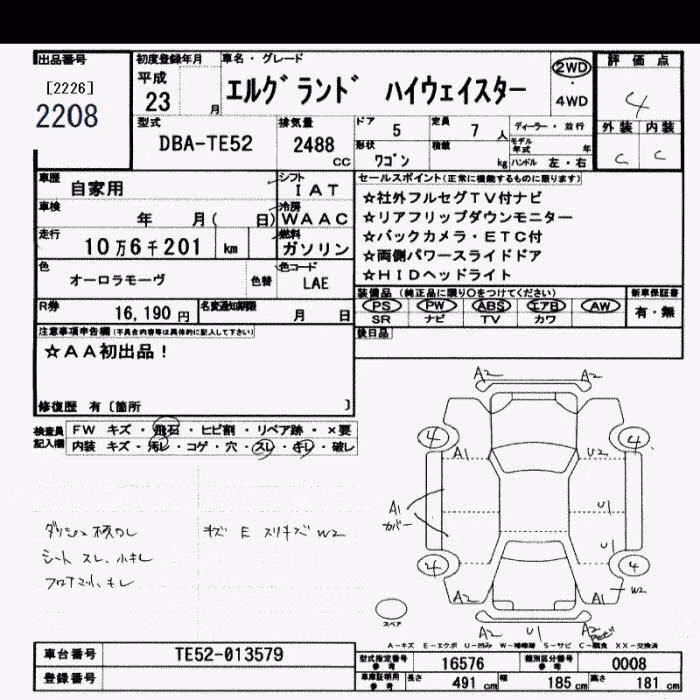 出品番号
[2226]
2208
初度登録年月
平成
23 月
車名・グレード
エルグランド ハイウェイスター
2WD
・
4WD
評価点
4
外装 内装
C C
型式
DBA-TE52
排気量
2488
CC
ドア
5
定員
7 人
ディーラー・並行
形状
ワゴン
積載
kg
モデル年式 年
ハンドル 左・右
車歴
自家用
シフト
IAT
車検
年 月( 日)
冷房
WAAC
走行
10万6千201 km
燃料
ガソリン
色
オーロラモーヴ
色替
色コード
LAE
R券
16,190 円
名変通知期限
月 日
セールスポイント(正常に機能するものに限ります)
☆社外フルセグTV付ナビ
☆リアフリップダウンモニター
☆バックカメラ・ETC付
☆両側パワースライドドア
☆HIDヘッドライト
装備品(純正品に限り○をつけてください)
PS PW ABS エアB AW
SR ナビ TV カワ
新車保証書
有・無
後日品
注意事項申告欄(不具合内容等は具体的に記入して下さい)
☆AA初出品!
修復歴 有〔箇所 〕
検査員記入欄
FW キズ・飛石・ヒビ割・リペア跡・×要
内装 キズ・汚レ・コゲ・穴・スレ・キレ・破レ
シート スレ、小キレ
キズ E スリキズ W2
A2 A2
4 4
A1 U2
A1
カバー
U1
U1
4 4
A2 A1 W2
A2 U1 A2
スペア
A-キズ E-エクボ U-凹み W-補修跡 S-サビ C-腐食 XX-交換済
車台番号
TE52-013579
登録番号
型式指定番号
参考
16576
類別区分番号
参考
0008
車庫証明用
参考
長さ 491 cm
幅 185 cm
高さ 181 cm